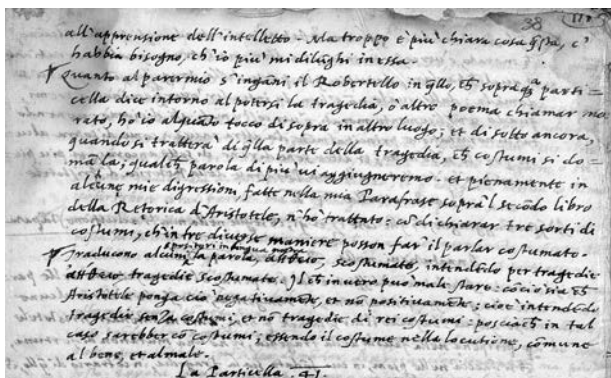 38
all'apprensione dell'intelletto. Ma troppo è più chiara cosa q̃sta, c'
habbia bisogno, ch'io più mi dilughi in essa.
Quanto al parer mio s'ingãni il Robertello in q̃llo, ch̃ sopra q̃sta parti=
cella dice intorno al potersi la tragedia, ò altro poema chiamar mo
rato, hò io alquãto tocco di sopra in altro luogo; et di sotto ancora,
quando si tratterà di q̃lla parte della tragedia, ch̃ costumi si do=
mãda; qualch̃ parola di più vi aggiugneremo. et pienamente in
alcune mie digressioni, fatte nella mia Parafrase sopra'l secõdo libro
della Retorica d'Aristotele, n'hò trattato: cõ dichiarar tre sorti di
costumi, ch'in tre diverse maniere posson far il parlar costumato.
Traducono alcuni spositori in lingua nostra la parola, scostumato, intendẽdo per tragedie
tragedie scostumate. Il ch̃ in vero può male stare: cõciosia ch̃
Aristotele ponga ciò negativamẽte, et nõ positivamẽte; cioè intendẽdo
tragedie senza costumi, et nõ tragedie di rei costumi: posciach̃ in tal
caso sarebber cõ costumi; essendo il costume nella locutione, comune
al bene, et al male.
La Particella. 41.